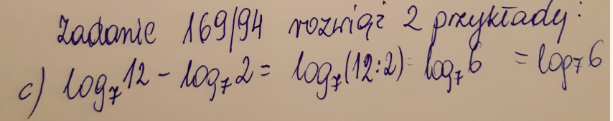 Zadanie 169/94 rozwiąż 2 przykłady:
c) log₇12 - log₇2 = log₇(12:2) = log₇6 = log₇6